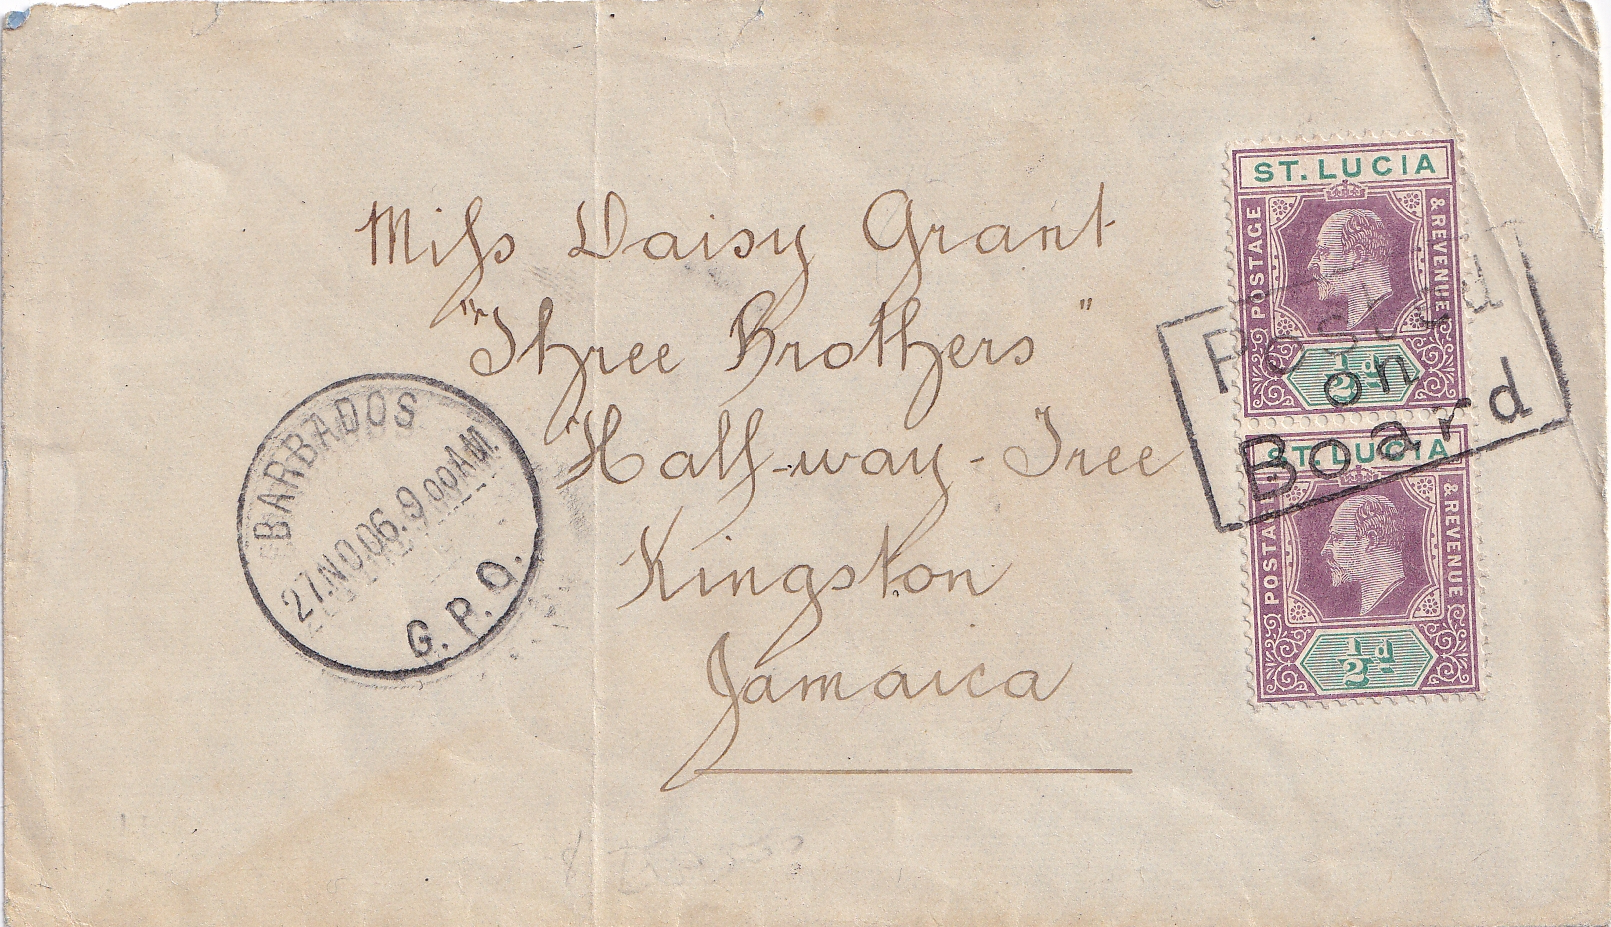 Miss Daisy Grant
"Three Brothers"
Half-way-Tree
Kingston
Jamaica
BARBADOS
27.NO.06.9.00AM.
G.P.O.
ST. LUCIA
POSTAGE
& REVENUE
1/2d
Posted
on
Board
ST. LUCIA
POSTAGE
& REVENUE
1/2d